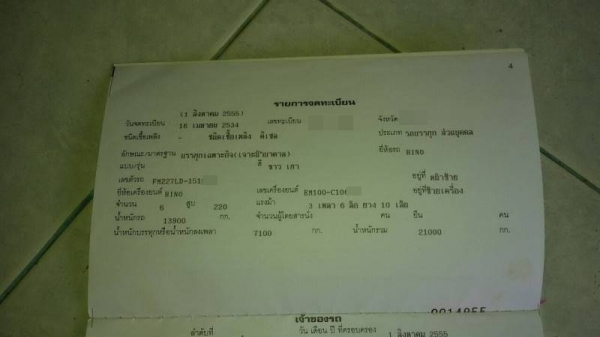 4
รายการจดทะเบียน
(1 สิงหาคม 2555)
วันจดทะเบียน 16 เมษายน 2534 เลขทะเบียน จังหวัด
ชนิดเชื้อเพลิง - ชนิดเชื้อเพลิง ดีเซล ประเภท รถบรรทุก ส่วนบุคคล
ลักษณะ/มาตรฐาน บรรทุกเฉพาะกิจ(เจาะบาดาล) ยี่ห้อรถ HINO
แบบ/รุ่น สี ขาว เทา
เลขตัวรถ FM227LD-151 อยู่ที่ หน้าซ้าย
ยี่ห้อเครื่องยนต์ HINO เลขเครื่องยนต์ EM100-C10 อยู่ที่ซ้ายเครื่อง
จำนวน 6 สูบ 220 แรงม้า 3 เพลา 6 ล้อ ยาง 10 เส้น
น้ำหนักรถ 13900 กก. จำนวนผู้โดยสารนั่ง คน ยืน คน
น้ำหนักบรรทุกหรือน้ำหนักลงเพลา 7100 กก. น้ำหนักรวม 21000 กก.
เจ้าของรถ
ลำดับที่ วัน เดือน ปี ที่ครอบครอง 1 สิงหาคม 2555